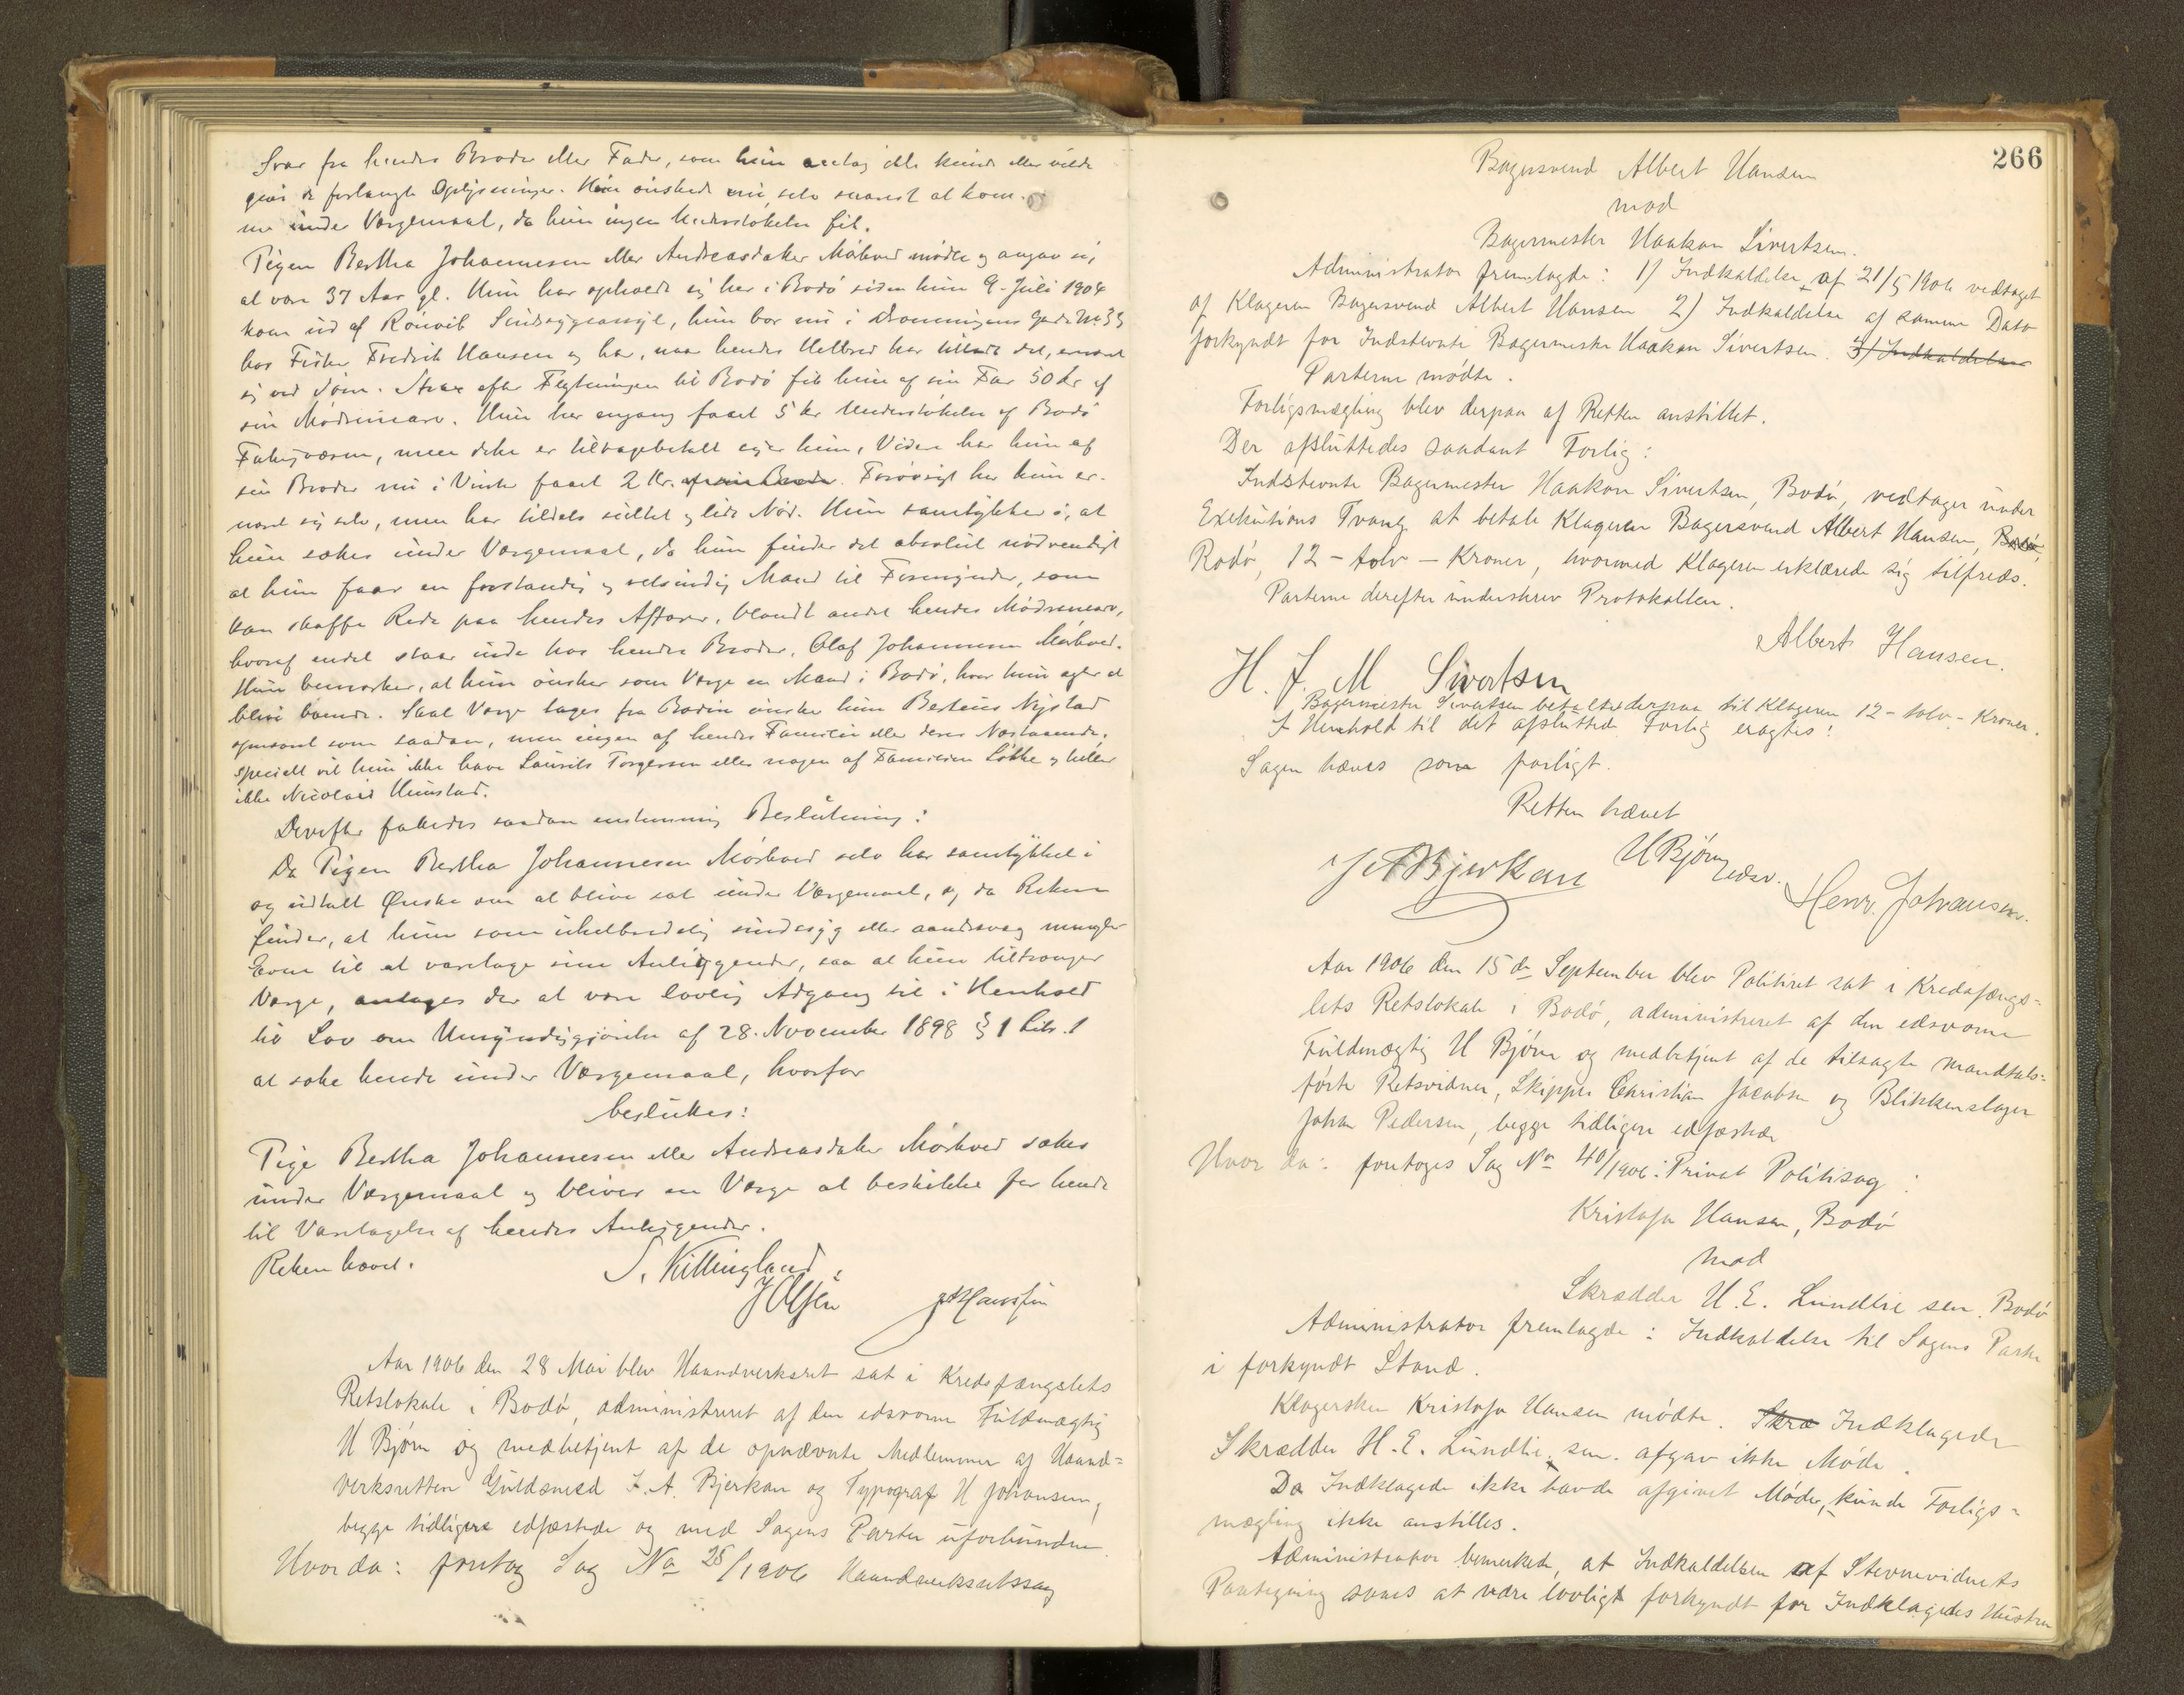 Svar fra hendes Broder eller Fader, som hun antog ikke kunde eller vilde
give de forlangte Oplysninger. Hun ønskede nu selv snarest at kom-
me under Værgemaal, da hun ingen Understøttelse fik.
Pigen Bertha Johannesen eller Andreasdatter Mørkved mødte og angav sig
at være 37 Aar gl. Hun har opholdt sig her i Bodø siden hun 9. Juli 1904
kom ud af Rønvik Sindsygeasyl, hun bor nu i Dronningens Gade No 33
hos Fisker Fredrik Hansen og har, naar hendes Helbred har tilladt det, ernæret
sig ved Søm. Strax efter Flytningen til Bodø fik hun af sin Far 50 kr af
sin Mødrenearv. Hun har engang faaet 5 kr Understøttelse af Bodø
Fattigvæsen, men dette er tilbagebetalt siger hun, Videre har hun af
sin Broder nu i Vinter faaet 2 Kr. af sin Broder. Forøvrigt har hun er-
næret sig selv, men har tildels sultet og lidt Nød. Hun samtykker i, at
hun sættes under Værgemaal, da hun finder det absolut nødvendigt
at hun faar en forstandig og velsindig Mand til Formynder, som
kan skaffe Rede paa hendes Affærer, blandt andet hendes Mødrenearv,
hvoraf endel staar inde hos hendes Broder, Olaf Johannesen Mørkved.
Hun bemærker, at hun ønsker som Værge en Mand i Bodø, hvor hun agter at
blive boende. Skal Værge tages fra Bodin ønsker hun Berteus Nystad
opnævnt som saadan, men ingen af hendes Familie eller deres Nærstaaende,
specielt vil hun ikke have Laurits Torgersen eller nogen af Familien Løkke og heller
ikke Nicolai Hunstad.
Derefter fattedes saadan enstemmig Beslutning:
Da Pigen Bertha Johannesen Mørkved selv har samtykket i
og udtalt Ønske om at blive sat under Værgemaal, og da Retten
finder, at hun som uhelbredelig sindssyg eller aandssvag mangler
Evne til at varetage sine Anliggender, saa at hun tiltrænger
Værge, antages der at være lovlig Adgang til i Henhold
til Lov om Umyndiggjørelse af 28. November 1898 § 1 Litr. 1
at sætte hende under Værgemaal, hvorfor
besluttes:
Pige Bertha Johannesen eller Andreasdatter Mørkved sættes
under Værgemaal og bliver en Værge at beskikke for hende
til Varetagelse af hendes Anliggender.
Retten hævet.
S. Killingland.
J Olsen
J. Hanssen
Aar 1906 den 28 Mai blev Haandverksret sat i Kredsfængslets
Retslokale i Bodø, administreret af den edsvorne Fuldmægtig
H Bjørn og medbetjent af de opnævnte Medlemmer af Haand=
verksretten Guldsmed J. A. Bjerkan og Typograf H Johansen,
begge tidligere edfæstede og med Sagens Parter uforbundne.
Hvor da: foretog Sag No 25/1906 Haandverksretssag
266
Bagersvend Albert Hansen
mod
Bagermester Haakon Sivertsen.
Administrator fremlagde: 1) Indkaldelse af 21/5 1906 vedtaget
af Klageren Bagersvend Albert Hansen 2) Indkaldelse af samme Dato
forkyndt for Indstevnte Bagermester Haakon Sivertsen. 3) Indkaldelsen
Parterne mødte.
Forligsmægling blev derpaa af Retten anstillet.
Der afsluttedes saadant Forlig:
Indstevnte Bagermester Haakon Sivertsen, Bodø, vedtager under
Exekutions Tvang at betale Klageren Bagersvend Albert Hansen, Bodø,
Rødø, 12 - tolv - Kroner, hvormed Klageren erklærede sig tilfreds.
Parterne derefter underskrev Protokollen.
Albert Hansen.
H. J. M Sivertsen
Bagermester Sivertsen betalte derpaa til Klageren 12 - tolv - Kroner.
I Henhold til det afsluttede Forlig eragtes:
Sagen hæves som forligt.
Retten hævet
J A Bjerkan H Bjørn edsv. Henr. Johansen.
Aar 1906 den 15de September blev Politiret sat i Kredsfængs=
lets Retslokale i Bodø, administreret af den edsvorne
Fuldmægtig H Bjørn og medbetjent af de tilsagte mandtals=
førte Retsvidner, Skipper Christian Jacobsen og Blikkenslager
Johan Pedersen, begge tidligere edfæstede
Hvor da: foretoges Sag No 40/1906: Privat Politisag:
Kristofa Hansen, Bodø
mod
Skrædder H. E. Lundlie sen. Bodø
Administrator fremlagde: Indkaldelse til Sagens Parter
i forkyndt Stand.
Klagersken Kristofa Hansen mødte. Skræ Indklagede
Skrædder H. E. Lundlie sen. afgav ikke Møde.
Da Indklagede ikke havde afgivet Møde, kunde Forligs=
mægling ikke anstilles.
Administrator bemerkede, at Indkaldelsen af Stevnevidnets
Paategning sees at være lovligt forkyndt for Indklagedes Hustru